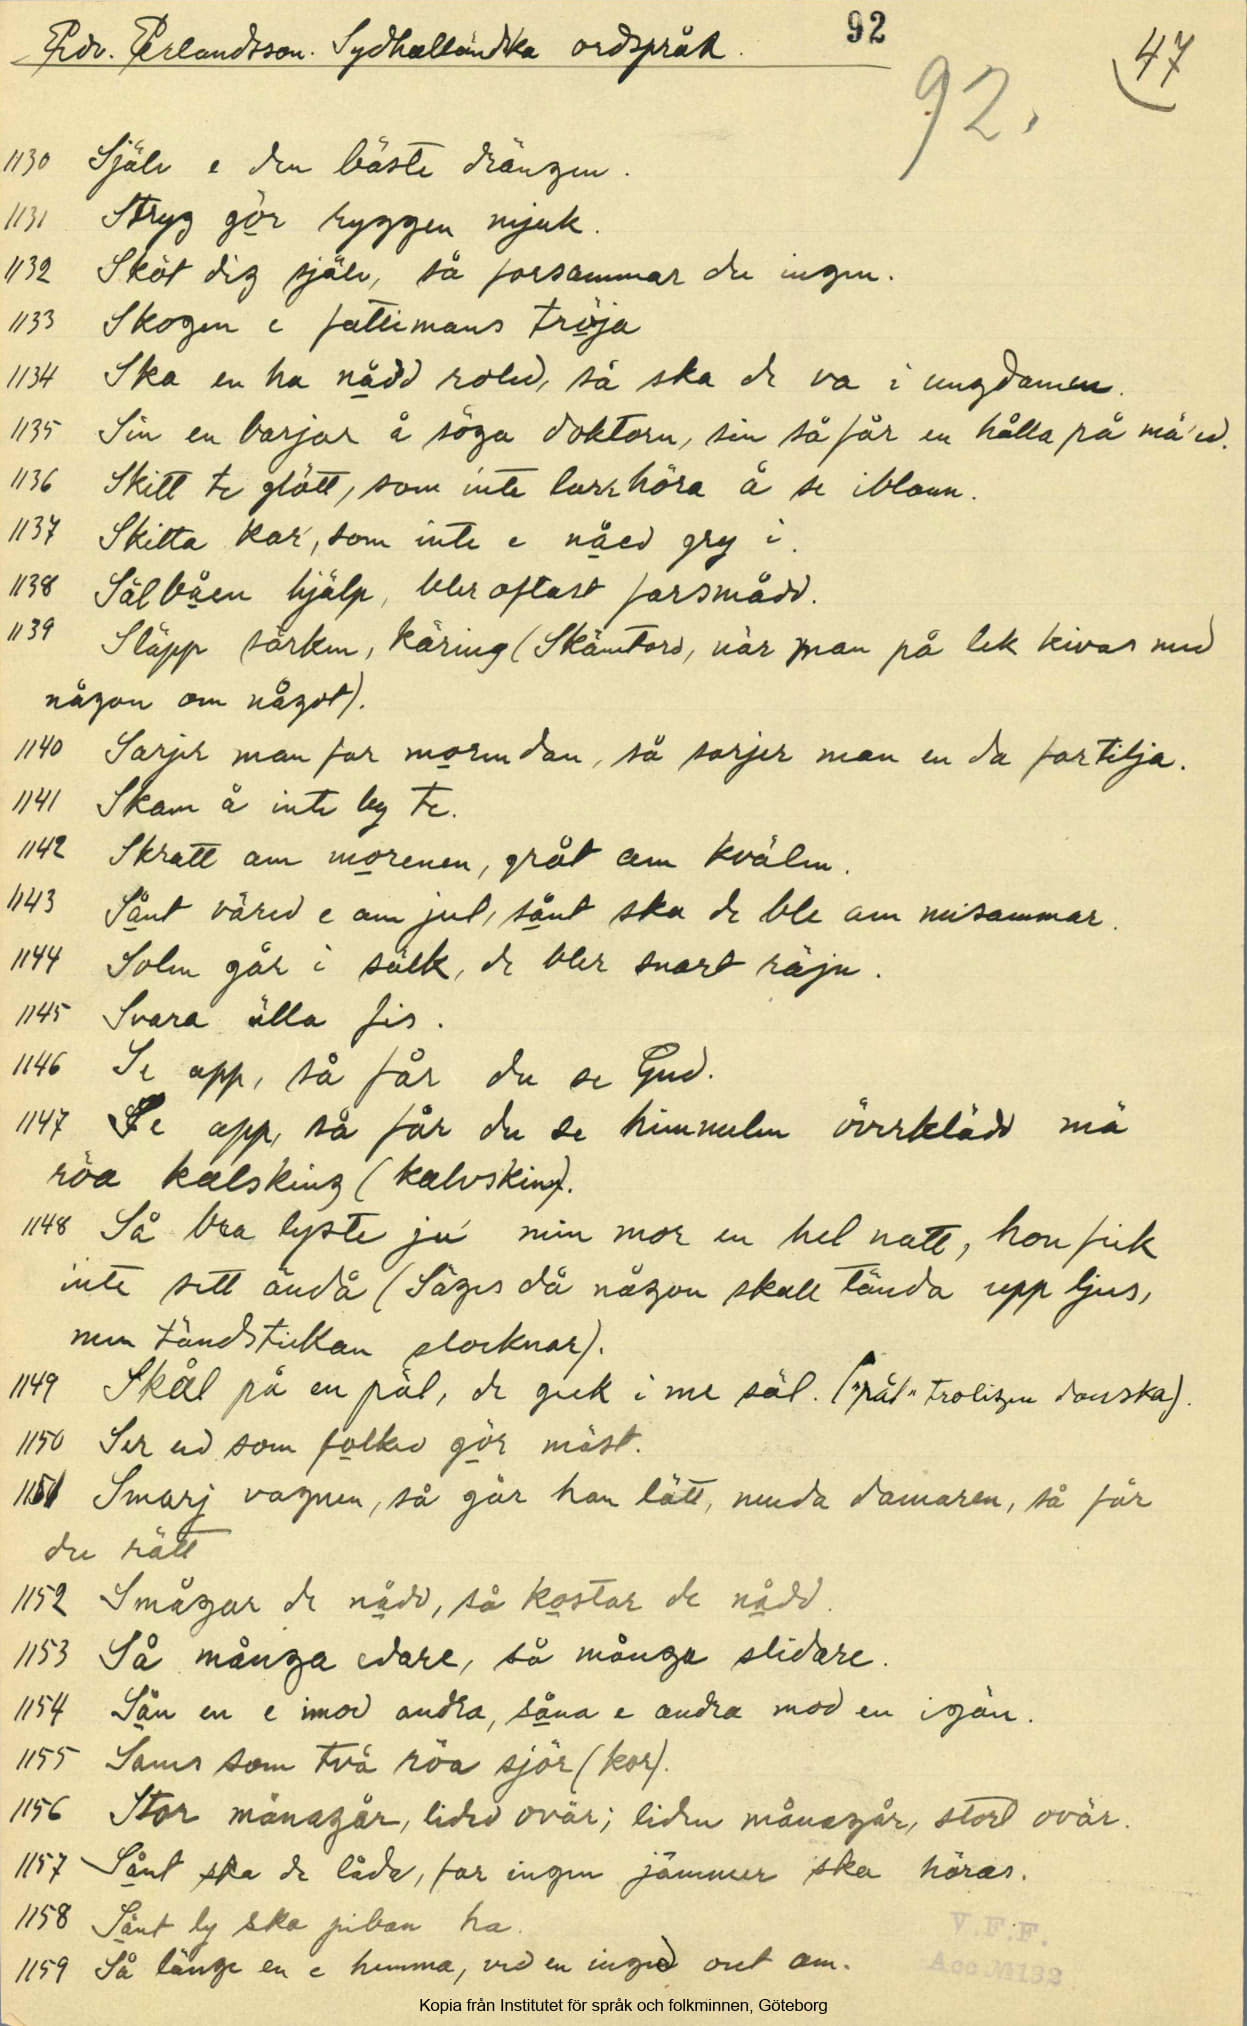 Edv. Erlandsson. Sydhalländska ordspråk. 92
92. 47
1130 Själv e den bäste drängen.
1131 Stryg gör ryggen mjuk.
1132 Sköt dig själv, så forsammar du ingen.
1133 Skogen e fattimans tröja
1134 Ska en ha nådd roled, så ska de va i ungdamen.
1135 Sin en barjar å söga doktorn, sin så får en hålla på mä'ed.
1136 Skitt te glött, som inte lurrhöra å se iblann.
1137 Skitta kar, som inte e nåed gry i.
1138 Sälbåen hjälp, bler oftast farsmådd.
1139 Släpp särken, käring (Skämtord, när man på lek kivas med
någon om något).
1140 Sarjer man far morendan, så sarjer man en da fartilja.
1141 Skam å inte by te.
1142 Skratt am morenen, gråt am kvälen.
1143 Såntväred e am jul, sånt ska de ble am misammar.
1144 Solen går i säck, de bler snart räjn.
1145 Svara älla fis.
1146 Se app, så får du se Gud.
1147 Se app, så får du se himmelen överklädd mä
röa kalsking (kalvskinn).
1148 Så bra lyste ju min mor en hel natt, hon fick
inte sett ändå (Säges då någon skall tända upp ljus,
men tändstickan slocknar).
1149 Skål på en pål, de gick i me säl. ("pål" troligen danska).
1150 Ser ud som folked gör mäst.
1151 Smarj vagnen, så går han lätt, muda damaren, så får
du rätt
1152 Smågar de nådd, så kostar de nådd.
1153 Så många edare, så många slidare.
1154 Sån en e imod andra, såna e andra mod en igän.
1155 Sams som två röa sjör (kor).
1156 Stor månagår, lided ovär; liden månagår, stort ovär.
1157 Sånt ska de låda, far ingen jämmer ska höras.
1158 Sånt ly ska piban ha.
1159 Så länge en e hemma, ved en inged ont am.
V.F.F.
Acc M132
Kopia från Institutet för språk och folkminnen, Göteborg